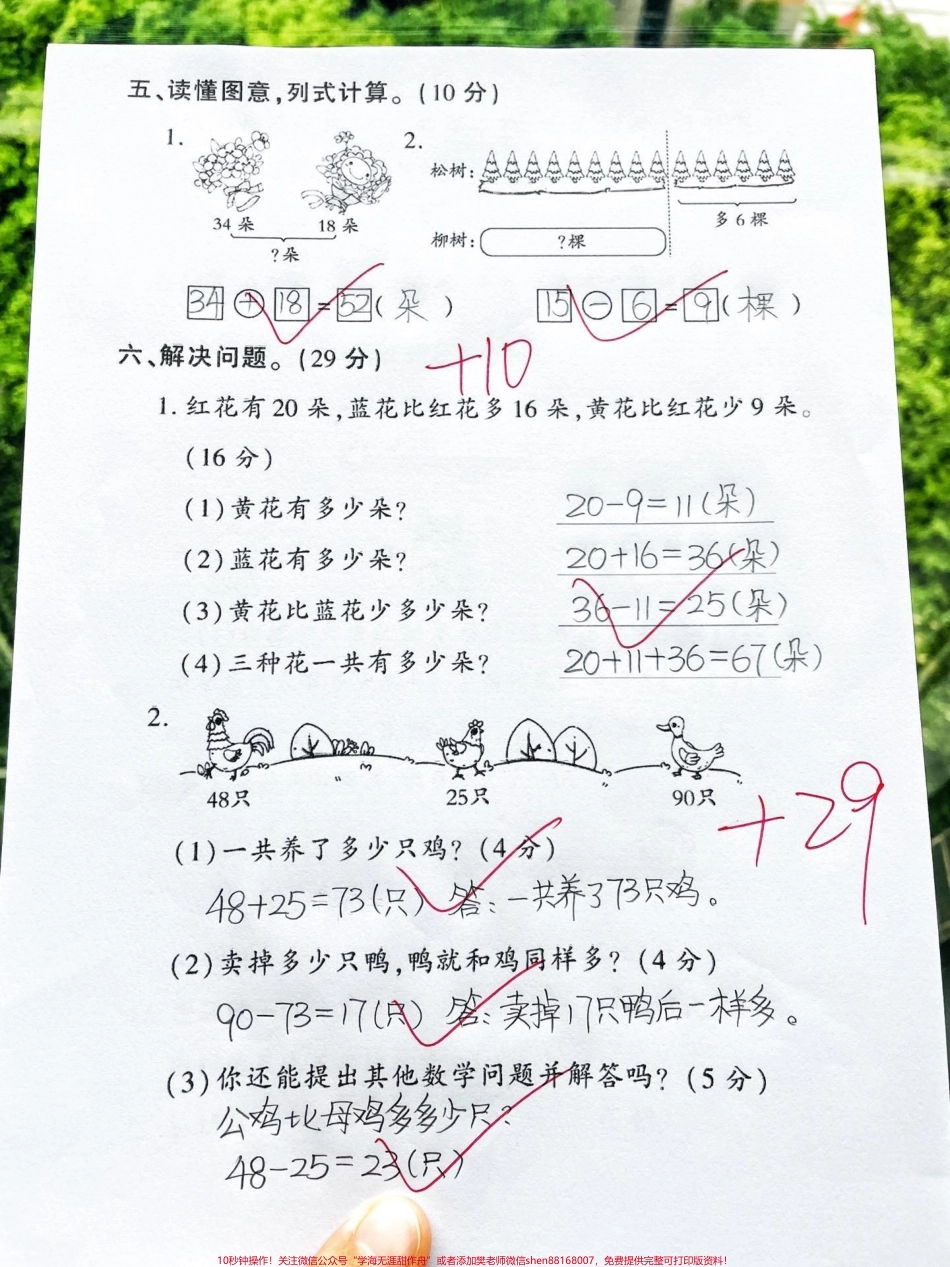 五、读懂图意,列式计算。(10分)
1.
2.
松树:
34朵 18朵
多6棵
?朵
柳树: ?棵
34+18=52(朵)
15-6=9(棵)
+10
六、解决问题。(29分)
1.红花有20朵,蓝花比红花多16朵,黄花比红花少9朵。
(16分)
(1)黄花有多少朵? 20-9=11(朵)
(2)蓝花有多少朵? 20+16=36(朵)
(3)黄花比蓝花少多少朵? 36-11=25(朵)
(4)三种花一共有多少朵? 20+11+36=67(朵)
2.
48只 25只 90只
+29
(1)一共养了多少只鸡?(4分)
48+25=73(只) 答:一共养了73只鸡。
(2)卖掉多少只鸭,鸭就和鸡同样多?(4分)
90-73=17(只) 答:卖掉17只鸭后一样多。
(3)你还能提出其他数学问题并解答吗?(5分)
公鸡比母鸡多多少只?
48-25=23(只)
10秒钟操作!关注微信公众号“学海无涯甜作舟”或者添加樊老师微信shen88168007,免费提供完整可打印版资料!